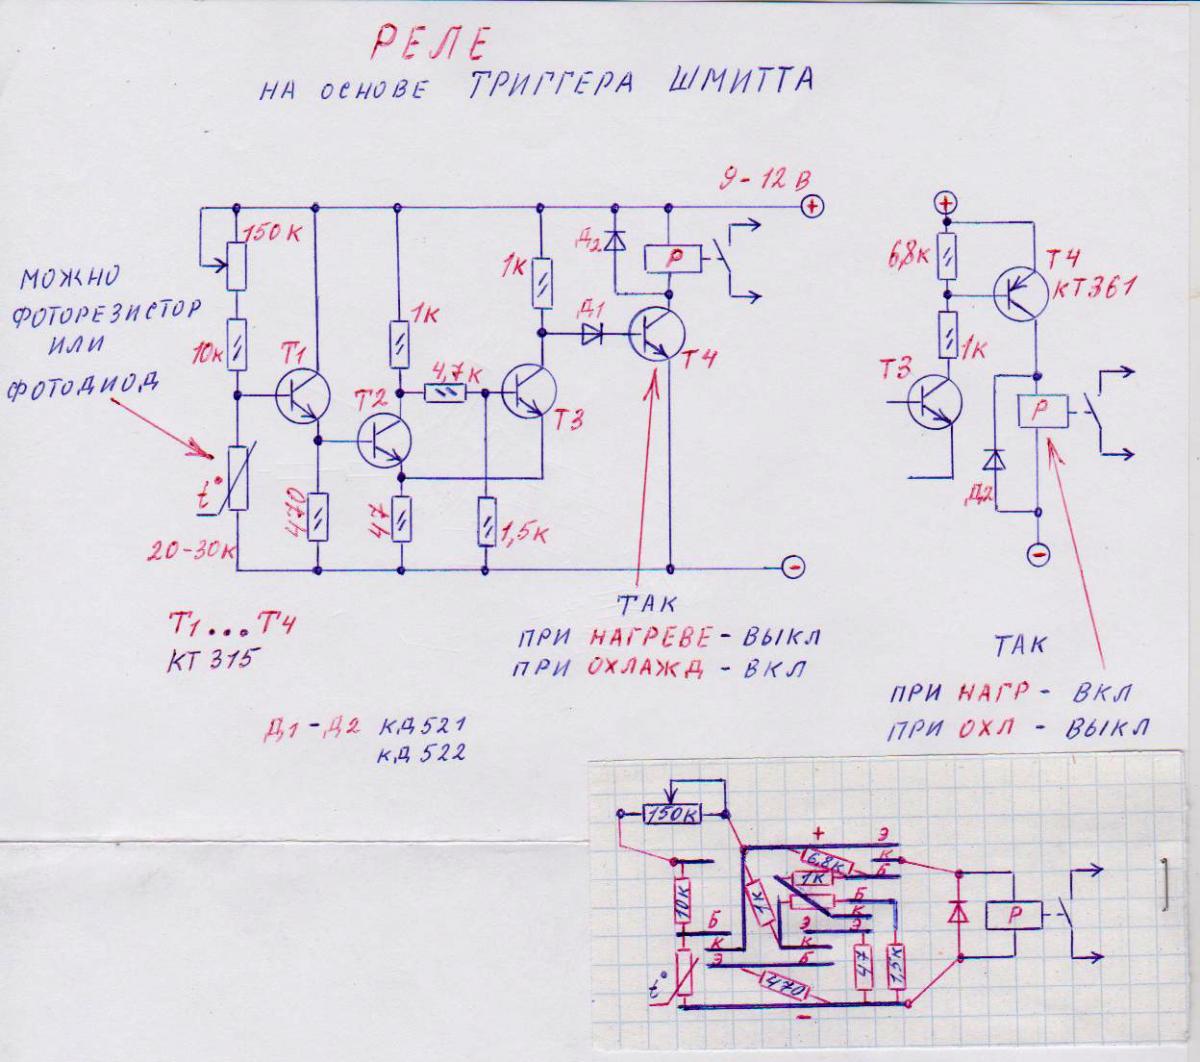 РЕЛЕ
НА ОСНОВЕ ТРИГГЕРА ШМИТТА
9-12 В
+
150К
Д2
Р
МОЖНО
ФОТОРЕЗИСТОР
ИЛИ
ФОТОДИОД
10К
Т1
1К
Т2
4,7К
1К
Д1
Т4
Т3
t°
470
47
1,5К
20-30К
-
+
6,8К
Т4
КТ361
1К
Т3
Р
Д2
-
Т1...Т4
КТ315
Д1-Д2 КД521
КД522
ТАК
ПРИ НАГРЕВЕ - ВЫКЛ
ПРИ ОХЛАЖД - ВКЛ
ТАК
ПРИ НАГР - ВКЛ
ПРИ ОХЛ - ВЫКЛ
150К
+
Э
6,8К
К
Б
1К
10К
1К
Б
К
Э
Б
К
Э
К
Б
Р
t°
470
47
1,5К
-